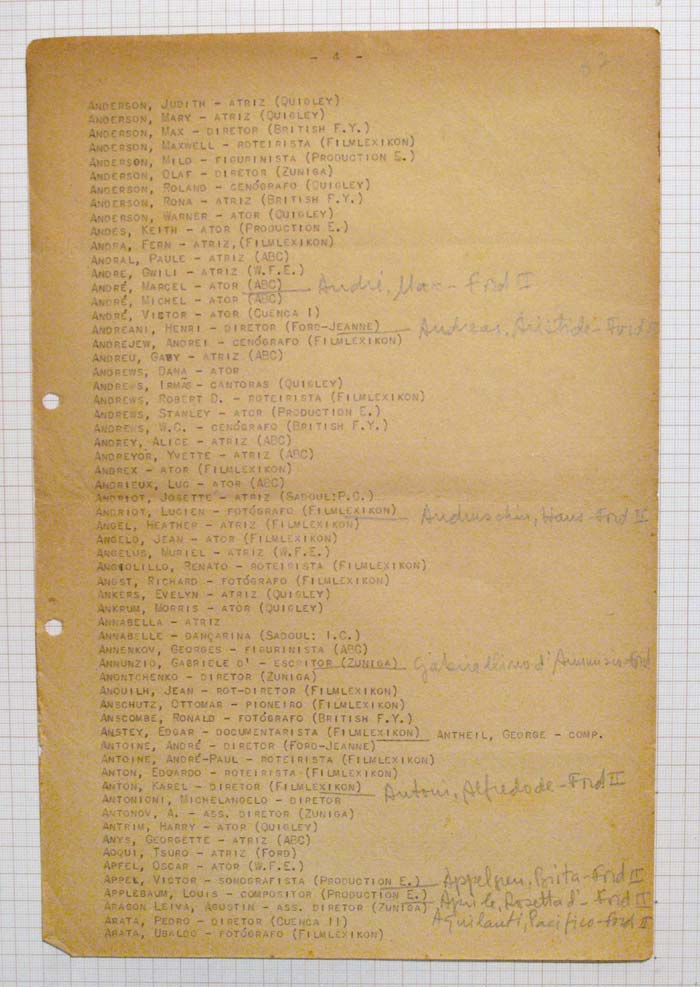 - 4 -
ANDERSON, JUDITH - ATRIZ (QUIGLEY)
ANDERSON, MARY - ATRIZ (QUIGLEY)
ANDERSON, MAX - DIRETOR (BRITISH F.Y.)
ANDERSON, MAXWELL - ROTEIRISTA (FILMLEXIKON)
ANDERSON, MILO - FIGURINISTA (PRODUCTION E.)
ANDERSON, OLAF - DIRETOR (ZUNIGA)
ANDERSON, ROLAND - CENÓGRAFO (QUIGLEY)
ANDERSON, RONA - ATRIZ (BRITISH F.Y.)
ANDERSON, WARNER - ATOR (QUIGLEY)
ANDES, KEITH - ATOR (PRODUCTION E.)
ANDRA, FERN - ATRIZ, (FILMLEXIKON)
ANDRAL, PAULE - ATRIZ (ABC)
ANDRE, GWILI - ATRIZ (W.F.E.)
ANDRÉ, MARCEL - ATOR (ABC) André, Max - Ford II
ANDRÉ, MICHEL - ATOR (ABC)
ANDRÉ, VICTOR - ATOR (CUENCA I)
ANDREANI, HENRI - DIRETOR (FORD-JEANNE) Andreas, Aristide - Ford
ANDREJEW, ANDREI - CENÓGRAFO (FILMLEXIKON)
ANDREU, GABY - ATRIZ (ABC)
ANDREWS, DANA - ATOR
ANDREWS, IRMÃS - CANTORAS (QUIGLEY)
ANDREWS, ROBERT D. - ROTEIRISTA (FILMLEXIKON)
ANDREWS, STANLEY - ATOR (PRODUCTION E.)
ANDREWS, W.C. - CENÓGRAFO (BRITISH F.Y.)
ANDREY, ALICE - ATRIZ (ABC)
ANDREYOR, YVETTE - ATRIZ (ABC)
ANDREX - ATOR (FILMLEXIKON)
ANDRIEUX, LUC - ATOR (ABC)
ANDRIOT, JOSETTE - ATRIZ (SADOUL:P.C.)
ANDRIOT, LUCIEN - FOTÓGRAFO (FILMLEXIKON) Andruschin, Hans - Ford II
ANGEL, HEATHER - ATRIZ (FILMLEXIKON)
ANGELO, JEAN - ATOR (FILMLEXIKON)
ANGELUS, MURIEL - ATRIZ (W.F.E.)
ANGIOLILLO, RENATO - ROTEIRISTA (FILMLEXIKON)
ANGST, RICHARD - FOTÓGRAFO (FILMLEXIKON)
ANKERS, EVELYN - ATRIZ (QUIGLEY)
ANKRUM, MORRIS - ATOR (QUIGLEY)
ANNABELLA - ATRIZ
ANNABELLE - DANÇARINA (SADOUL: I.C.)
ANNENKOV, GEORGES - FIGURINISTA (ABC)
ANNUNZIO, GABRIELE D' - ESCRITOR (ZUNIGA) d'Annunzio - Ford
ANONTCHENKO - DIRETOR (ZUNIGA)
ANOUILH, JEAN - ROT-DIRETOR (FILMLEXIKON)
ANSCHUTZ, OTTOMAR - PIONEIRO (FILMLEXIKON)
ANSCOMBE, RONALD - FOTÓGRAFO (BRITISH F.Y.)
ANSTEY, EDGAR - DOCUMENTARISTA (FILMLEXIKON) ANTHEIL, GEORGE - COMP.
ANTOINE, ANDRÉ - DIRETOR (FORD-JEANNE)
ANTOINE, ANDRÉ-PAUL - ROTEIRISTA (FILMLEXIKON)
ANTON, EDOARDO - ROTEIRISTA (FILMLEXIKON)
ANTON, KAREL - DIRETOR (FILMLEXIKON) Antoni, Alfredo de - Ford II
ANTONIONI, MICHELANGELO - DIRETOR
ANTONOV, A. - ASS. DIRETOR (ZUNIGA)
ANTRIM, HARRY - ATOR (QUIGLEY)
ANYS, GEORGETTE - ATRIZ (ABC)
AOQUI, TSURO - ATRIZ (FORD)
APFEL, OSCAR - ATOR (W.F.E.)
APPEL, VICTOR - SONOGRAFISTA (PRODUCTION E.) Appelgren, Brita - Ford II
APPLEBAUM, LOUIS - COMPOSITOR (PRODUCTION E.) Aprile, Rosetta d' - Ford II
ARAGON LEIVA, AGUSTIN - ASS. DIRETOR (ZUNIGA) Aquilanti, Pacifico - Ford II
ARATA, PEDRO - DIRETOR (CUENCA II)
ARATA, UBALDO - FOTÓGRAFO (FILMLEXIKON)